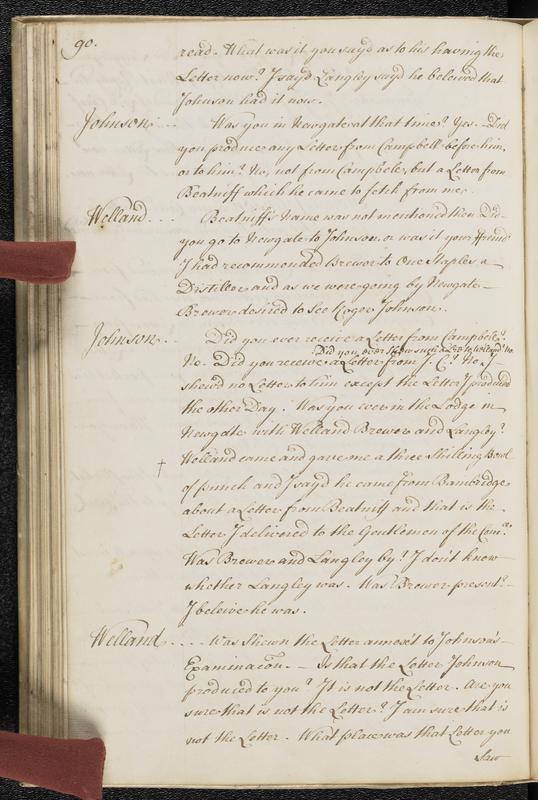 90.
read. What was it you say'd as to his having the
Letter now? I say'd Langley say'd he beleived that
Johnson had it now.
Johnson... Was you in Newgate at that time? Yes. Did
you produce any Letter from Campbell before him,
or to him? No, not from Campbele, but a Letter from
Beatniff which he came to fetch from me.
Welland.... Beatniff's Name was not mentioned then. Did
you go to Newgate to Johnson, or was it your ffriend?
I had recommended Brewer to One Staples a
Distiller and as we were going by Newgate
Brewer desired to See Roger Johnson.
Johnson... Did you ever receive a Letter from Campbele?
Did you ever Shew such a Lre to Welland? No.
No. Did you receive a Letter from J. C.? No. I
shew'd no Letter to him except the Letter I produced
the other Day. Was you ever in the Lodge in
Newgate with Welland Brewer and Langley?
† Welland came and gave me a three Shilling Bowl
of punch and I say'd he came from Bambridge
about a Letter from Beatniff and that is the
Letter I delivered to the Gentlemen of the Com:ee
Was Brewer and Langley by? I don't know
whether Langley was. Was Brewer present?
I beleive he was.
Welland.... Was Shewn the Letter annex't to Johnson's
Examinacon. Is that the Letter Johnson
produced to you? It is not the Letter. Are you
sure that is not the Letter? I am sure that is
not the Letter. What place was that Letter you
Saw